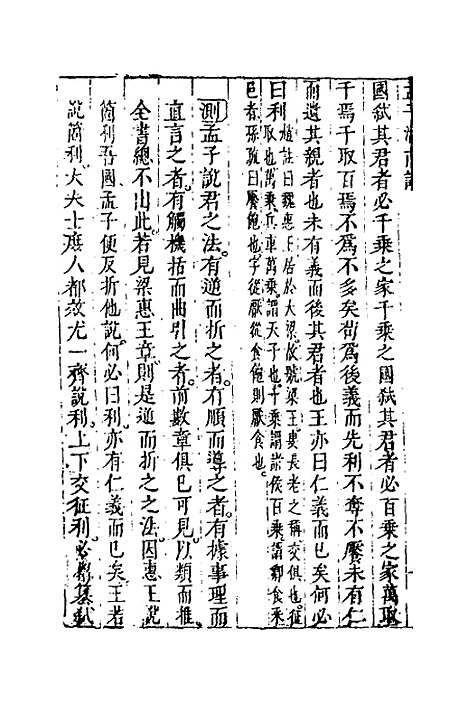 國弑其君者必千乘之家千乘之國弑其君者必百乘之家萬取
千焉千取百焉不爲不多矣苟爲後義而先利不奪不饜未有仁
而遺其親者也未有義而後其君者也王亦曰仁義而已矣何必
曰利
趙註曰魏惠王居於大梁故號梁王叟長老之稱交俱也征
取也萬乘兵車萬乘謂天子也千乘謂諸侯百乘謂卿食采
邑者孫疏曰饜飽也字從厭從食飽則厭食也
測孟子說君之法有逆而折之者有順而導之者有據事理而
直言之者有觸機括而曲引之者前數章俱已可見以類而推
全書總不出此若見梁惠王章則是逆而折之之法因惠王說
箇利吾國孟子便反折他說何必曰利亦有仁義而已矣王若
說箇利大夫士庶人都效尤一齊說利上下交征利必